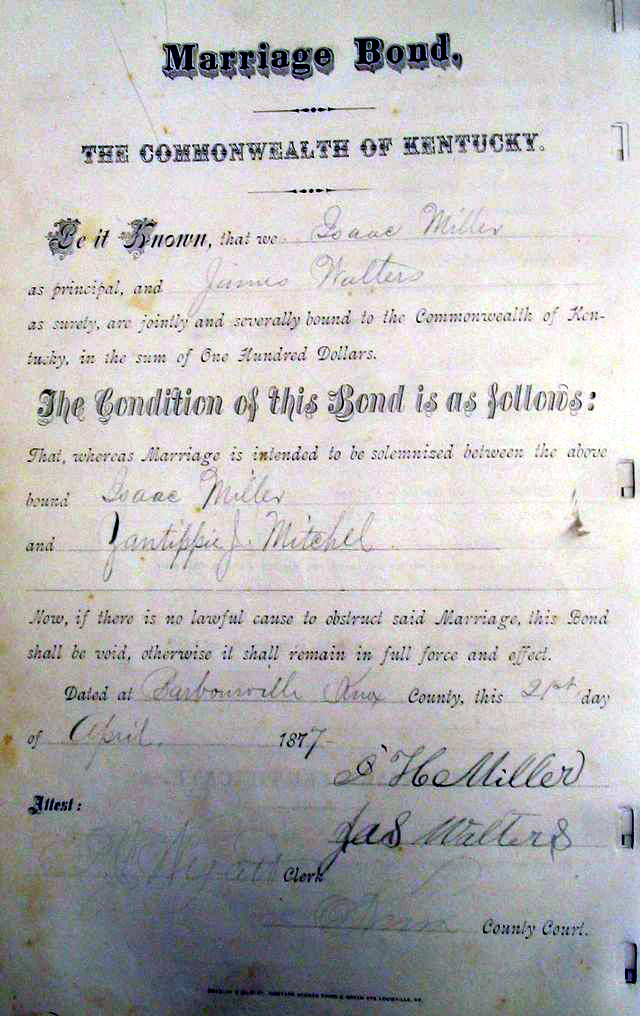 Marriage Bond,
THE COMMONWEALTH OF KENTUCKY.
Be it Known, that we Isaac Miller
as principal, and James Walters
as surety, are jointly and severally bound to the Commonwealth of Ken-
tucky, in the sum of One Hundred Dollars.
The Condition of this Bond is as follows:
That, whereas Marriage is intended to be solemnized between the above
bound Isaac Miller
and Zantippie J. Mitchel
Now, if there is no lawful cause to obstruct said Marriage, this Bond
shall be void, otherwise it shall remain in full force and effect.
Dated at Barbourville Knox County, this 21st day
of April. 1877
I H Miller
Attest:
Jas Walters
Wyatt Clerk
Knox County Court.